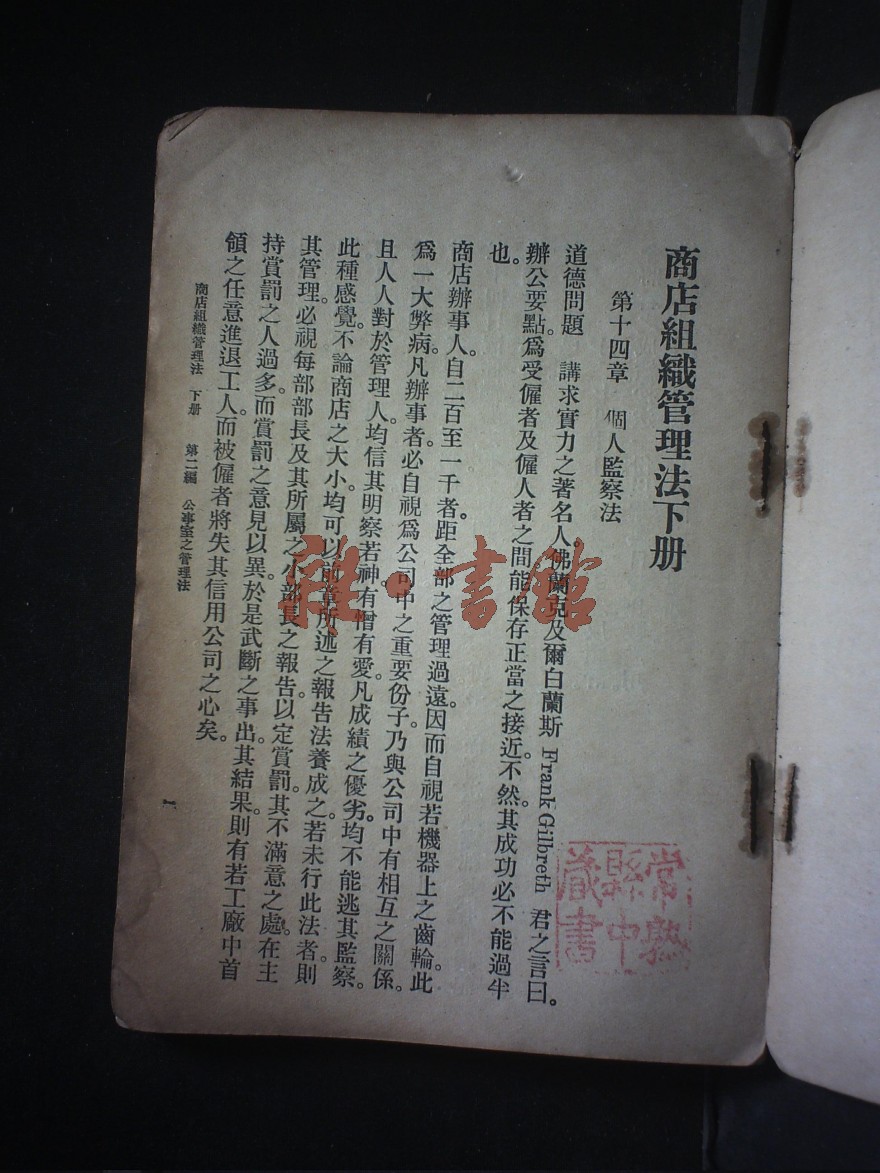 商店組織管理法下册
第十四章　個人監察法
道德問題　講求實力之著名人佛蘭克及爾白蘭斯 Frank Gilbreth 君之言曰。
辦公要點。爲受僱者及僱人者之間能保存正當之接近。不然。其成功必不能過半
也。
商店辦事人。自二百至一千者。距全部之管理過遠。因而自視若機器上之齒輪。此
爲一大弊病。凡辦事者。必自視爲公司中之重要份子。乃與公司中有相互之關係。
且人人對於管理人。均信其明察若神。有憎有愛。凡成績之優劣。均不能逃其監察。
此種感覺。不論商店之大小。均可以前章所述之報告法養成之。若未行此法者。則
其管理。必視每部部長及其所屬之小部長之報告。以定賞罰。其不滿意之處。在主
持賞罰之人過多。而賞罰之意見以異。於是武斷之事出。其結果。則有若工廠中首
領之任意進退工人。而被僱者將失其信用公司之心矣。
商店組織管理法　下册　第二編　公事室之管理法
一
雜·書館
常熟
中
藏書